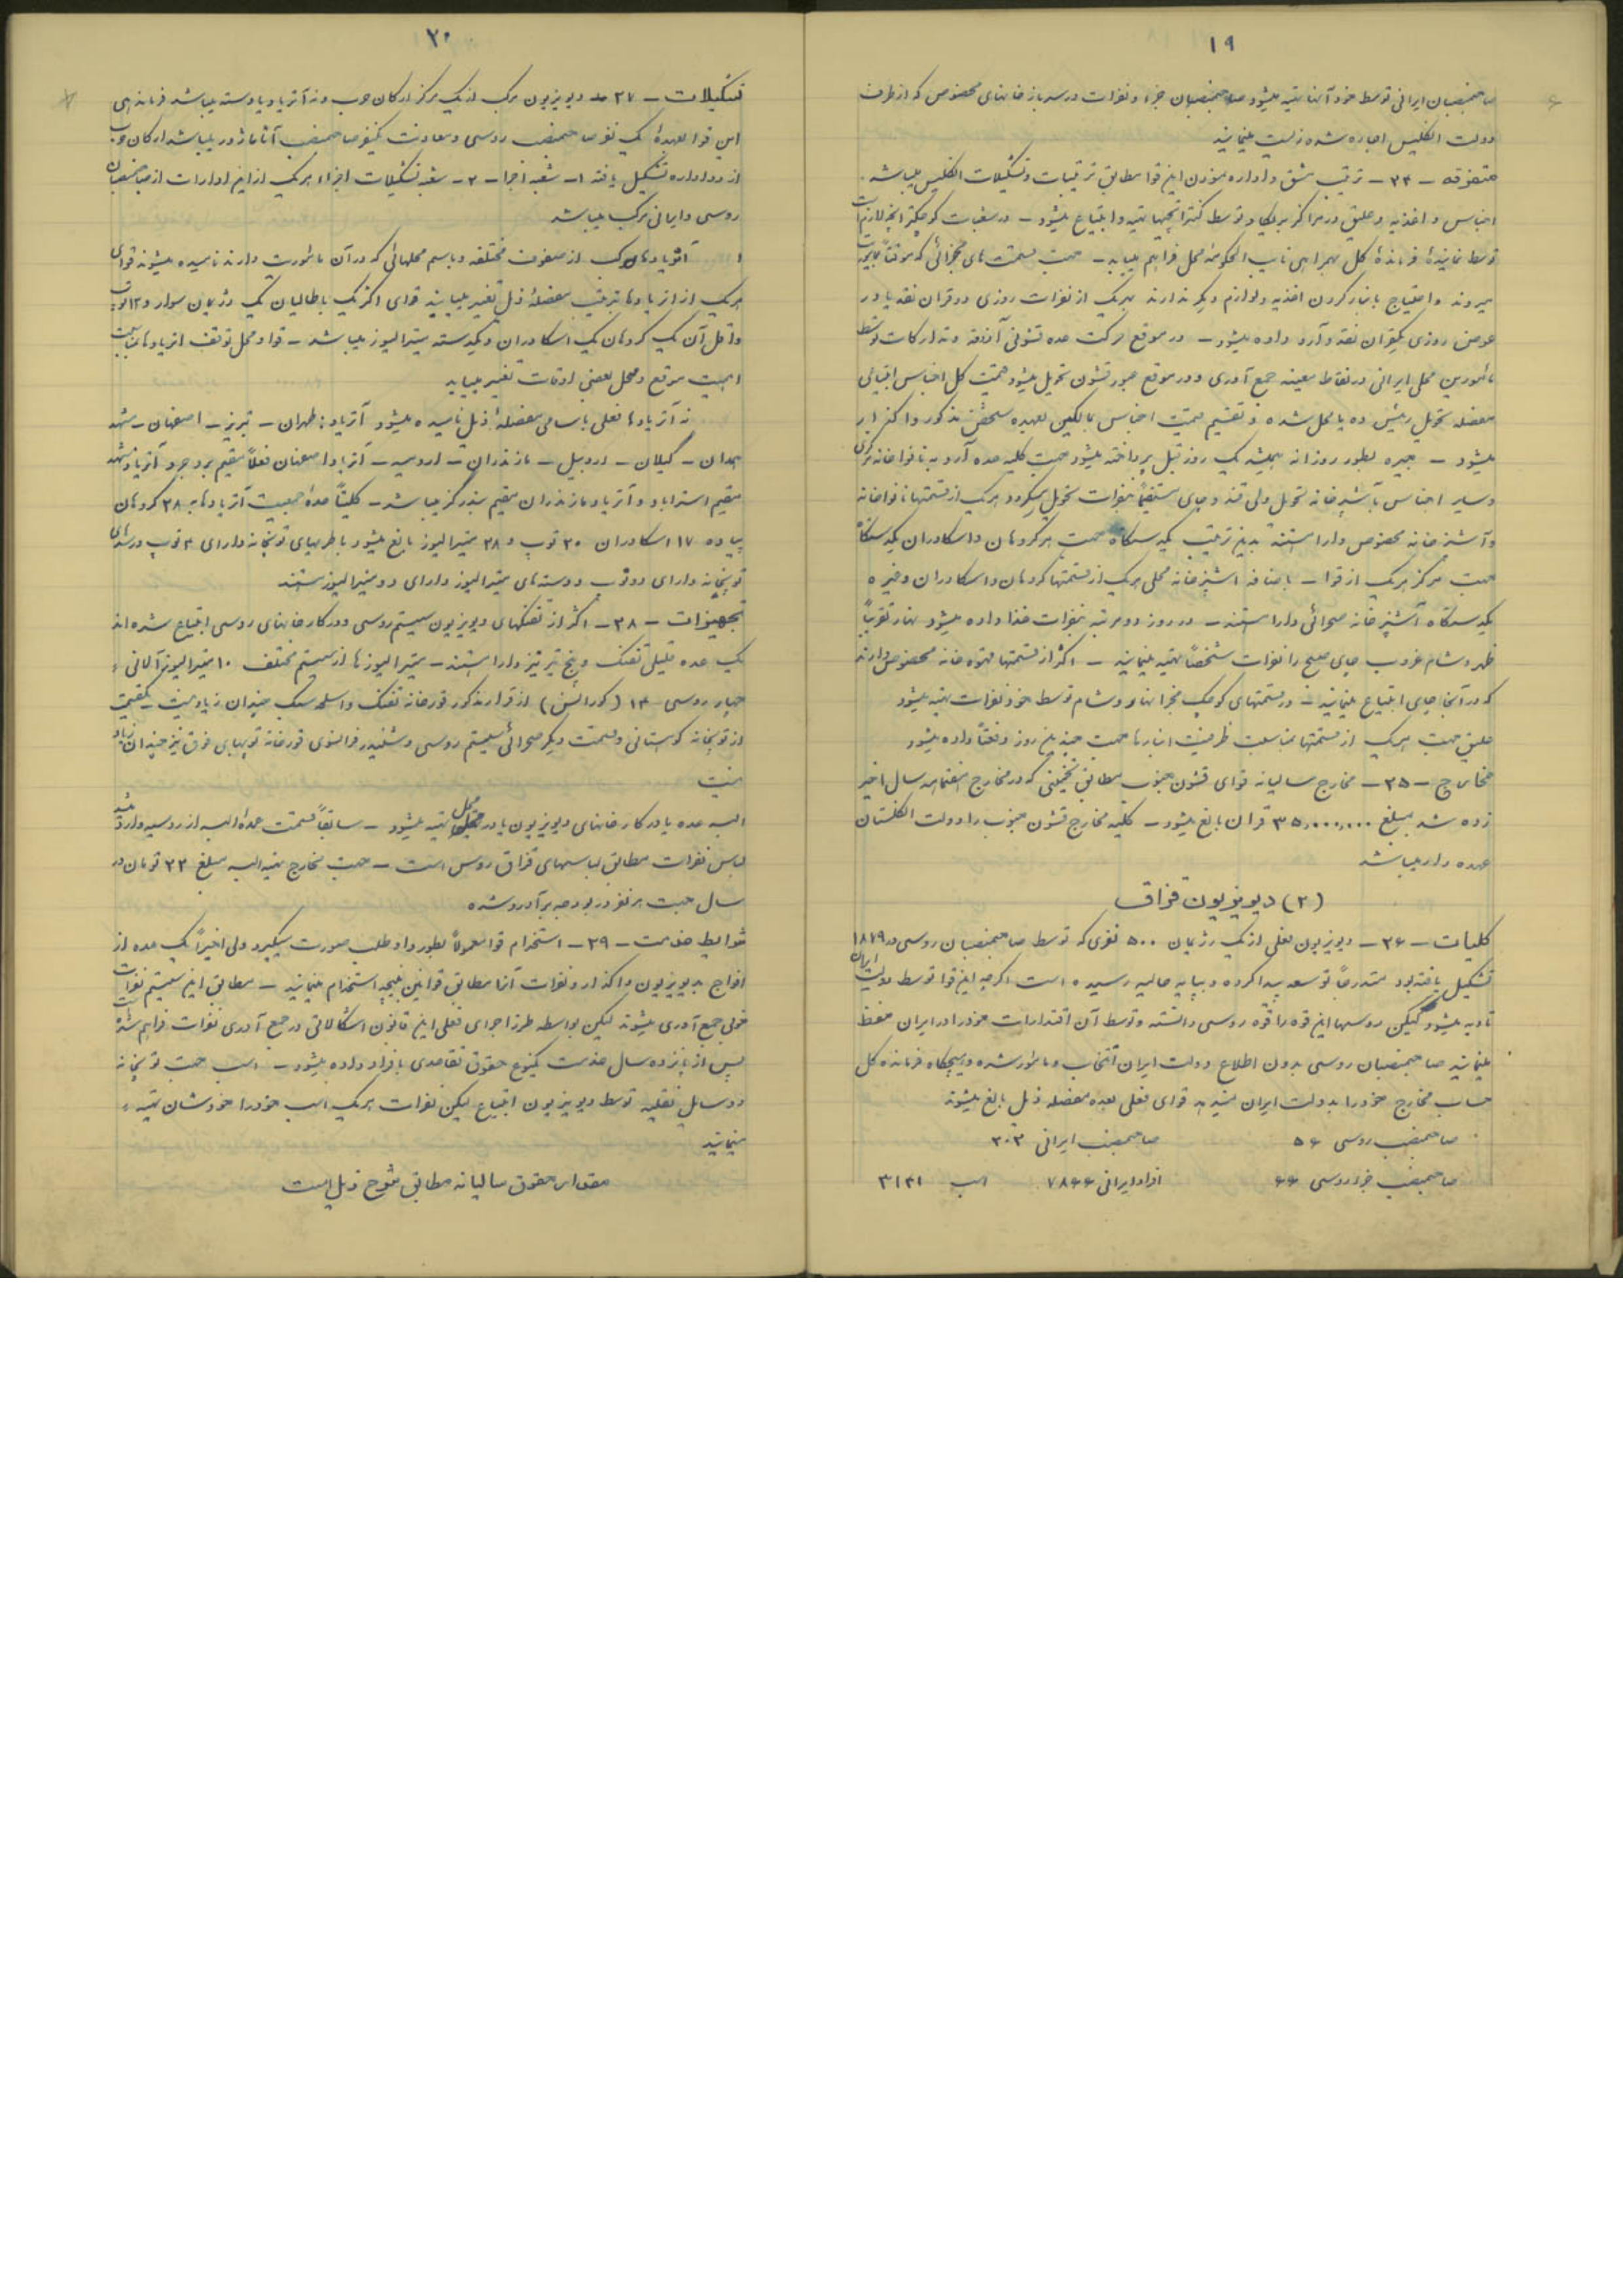 ۱۹
صاحبمنصبان ایرانی توسط خود آنها تهیه میشود صاحبمنصبان جزء و نفرات در سربازخانهای مخصوص که از طرف
دولت انگلیس اجاره شده زیست مینمایند
متفرقه – ۳۴ – ترتیب مشق و اداره نمودن این قوا مطابق ترتیبات و تشکیلات انگلیس میباشد.
اجناس و اغذیه و علیق در مراکز بریگاد توسط کنتراتچیها تهیه و ابتیاع میشود – در شعبات کوچکتر آنچه لازم است
توسط نماینده فرمانده کل بهمراهی نایب الحکومه محل فراهم میآید – جهت قسمت های مجزائی که موقتاً بمأموریت
میروند و احتیاج بانبار کردن اغذیه و لوازم دیگر ندارند بهر یک از نفرات روزی دو قران نقد یا در
عوض روزی یکقران نقد و آرد داده میشود – در موقع حرکت عده قشونی آذوقه و تدارکات توسط
مأمورین محلی ایرانی در نقاط معینه جمع آوری و در موقع عبور قشون تحویل میشود قیمت کل اجناس ابتیاعی
مفصله تحویل رئیس ده یا محل شده و تقسیم قیمت اجناس بمالکین بعهده شخص مذکور واگذار
میشود – جیره بطور روزانه همیشه یک روز قبل پرداخته میشود جهت کلیه عده آرد به نانواخانه مرکزی
و سایر اجناس بآشپزخانه تحویل ولی قند و چای مستقیماً بنفرات تحویل میگردد هر یک از قسمتها نانواخانه
و آشپزخانه مخصوص دارا هستند بدین ترتیب یکدستگاه جهت هر گروهان و اسکادران یکدستگاه
جهت مرکز هر یک از قوا – باضافه آشپزخانه محلی هر یک از قسمتها گروهان و اسکادران و غیره
یکدستگاه آشپزخانه صحرائی دارا هستند – در روز دو مرتبه بنفرات غذا داده میشود نهار تقریباً
ظهر و شام غروب چای صبح را نفرات شخصاً تهیه مینمایند – اکثر از قسمتها قهوه خانه مخصوص دارند
که در آنجا چای ابتیاع مینمایند – در قسمتهای کوچک مجزا نهار و شام توسط خود نفرات تهیه میشود
علیق جهت هر یک از قسمتها بمناسبت ظرفیت انبارها جهت چندین روز دفعتاً داده میشود
مخارج – ۳۵ – مخارج سالیانه قوای قشون جنوب مطابق تخمینی که در مخارج هفتماهه سال اخیر
زده شد بمبلغ ۳۵٬۰۰۰٬۰۰۰ قران بالغ میشود – کلیه مخارج قشون جنوب را دولت انگلستان
عهده دار میباشد
(۲) دیویزیون قزاق
کلیات – ۳۶ – دیویزیون فعلی از یک رژیمان ۵۰۰ نفری که توسط صاحبمنصبان روسی در ۱۸۷۹
تشکیل یافته بود متدرجاً توسعه پیدا کرده و بپایه حالیه رسیده است اگرچه این قوا توسط دولت ایران
تأدیه میشود لیکن روسها این قوه را قوه روسی دانسته و توسط آن اقتدارات خود را در ایران حفظ
مینمایند صاحبمنصبان روسی بدون اطلاع دولت ایران انتخاب و مأمور شده و هیچگاه فرمانده کل
حساب مخارج خود را بدولت ایران نمیدهد قوای فعلی بعده مفصله ذیل بالغ میشوند
صاحبمنصب روسی ۵۶ صاحبمنصب ایرانی ۳۰۳
صاحبمنصب جزء روسی ۶۶ افراد ایرانی ۷۸۶۶ اسب ۳۱۳۱
۲۰
تشکیلات – ۳۷ – دیویزیون مرکب از یک مرکز ارکان حرب و نه آتریاد یا دسته میباشد فرماندهی
این قوا بعهدهٔ یک نفر صاحبمنصب روسی و معاونت یکنفر صاحبمنصب آتاماژور میباشد ارکان حرب
از دو اداره تشکیل یافته ۱– شعبه اجرا – ۲– شعبه تشکیلات اجزاء هر یک از این ادارات از صاحبمنصبان
روسی و ایرانی مرکب میباشد
آتریادهای مرکب از صفوف مختلفه و باسم محلهائی که در آن مأموریت دارند نامیده میشوند قوای
هر یک از آتریادها بترتیب مفصلهٔ ذیل تغییر مییابند قوای اکثر یک باطالیان یک رژیمان سوار و ۱۲ توپ
و اقل آن یک گروهان یک اسکادران و یکدسته میترالیوز میباشد – قوا و محل توقف آتریادها بمناسبت
اهمیت موقع و محل بعضی اوقات تغییر مییابد
نه آتریادها فعلی باسامی مفصلهٔ ذیل نامیده میشود آتریاد: طهران – تبریز – اصفهان – مشهد
همدان – گیلان – اردبیل – مازندران – ارومیه – آتریاد اصفهان فعلاً مقیم بروجرد آتریاد مشهد
مقیم استراباد و آتریاد مازندران مقیم بندرگز میباشد – کلیتاً عدهٔ جمعیت آتریادها به ۳۸ گروهان
پیاده ۱۷ اسکادران ۳۰ توپ و ۳۸ میترالیوز بالغ میشود باطریهای توپخانه دارای ۴ توپ و رسدهای
توپخانه دارای دو توپ و دسته های میترالیوز دارای دو میترالیوز هستند
تجهیزات – ۳۸ – اکثر از تفنگهای دیویزیون سیستم روسی و در کارخانهای روسی ابتیاع شده اند
یک عده قلیلی تفنگ پنج تیر نیز دارا هستند – میترالیوزها از سیستم مختلف ۱۰ میترالیوز آلمانی
چهار روسی – ۱۴ (کورالنش) از قرار مذکور قورخانه تفنگ و اسلحه سبک چندان زیاد نیست یکقسمت
از توپخانه کوهستانی و قسمت دیگر صحرائی سیستم روسی و شنیدر فرانسوی قورخانه توپهای فوق نیز چندان زیاد
نیست
البسه عده یا در کارخانهای دیویزیون یا در محل تهیه میشود – سابقاً قسمت عمدهٔ البسه از روسیه وارد میشد
لباس نفرات مطابق لباسهای قزاق روس است – جهت مخارج تهیه البسه مبلغ ۲۲ تومان در
سال جهت هر نفر در بودجه برآورد شده
شرایط خدمت – ۳۹ – استخدام قوا معمولاً بطور داوطلب صورت میگیرد ولی اخیراً یک عده از
افواج بدیویزیون واگذار و نفرات آنها مطابق قوانین بنیچه استخدام مینمایند – مطابق این سیستم نفرات
خوبی جمع آوری میشوند لیکن بواسطه طرز اجرای فعلی این قانون اشکالاتی در جمع آوری نفرات فراهم شده است
پس از پانزده سال خدمت یکنوع حقوق تقاعدی بافراد داده میشود – اسب جهت توپخانه
و وسایل نقلیه توسط دیویزیون ابتیاع لیکن نفرات هر یک اسب خود را خودشان تهیه
مینمایند
مقدار حقوق سالیانه مطابق شرح ذیل است